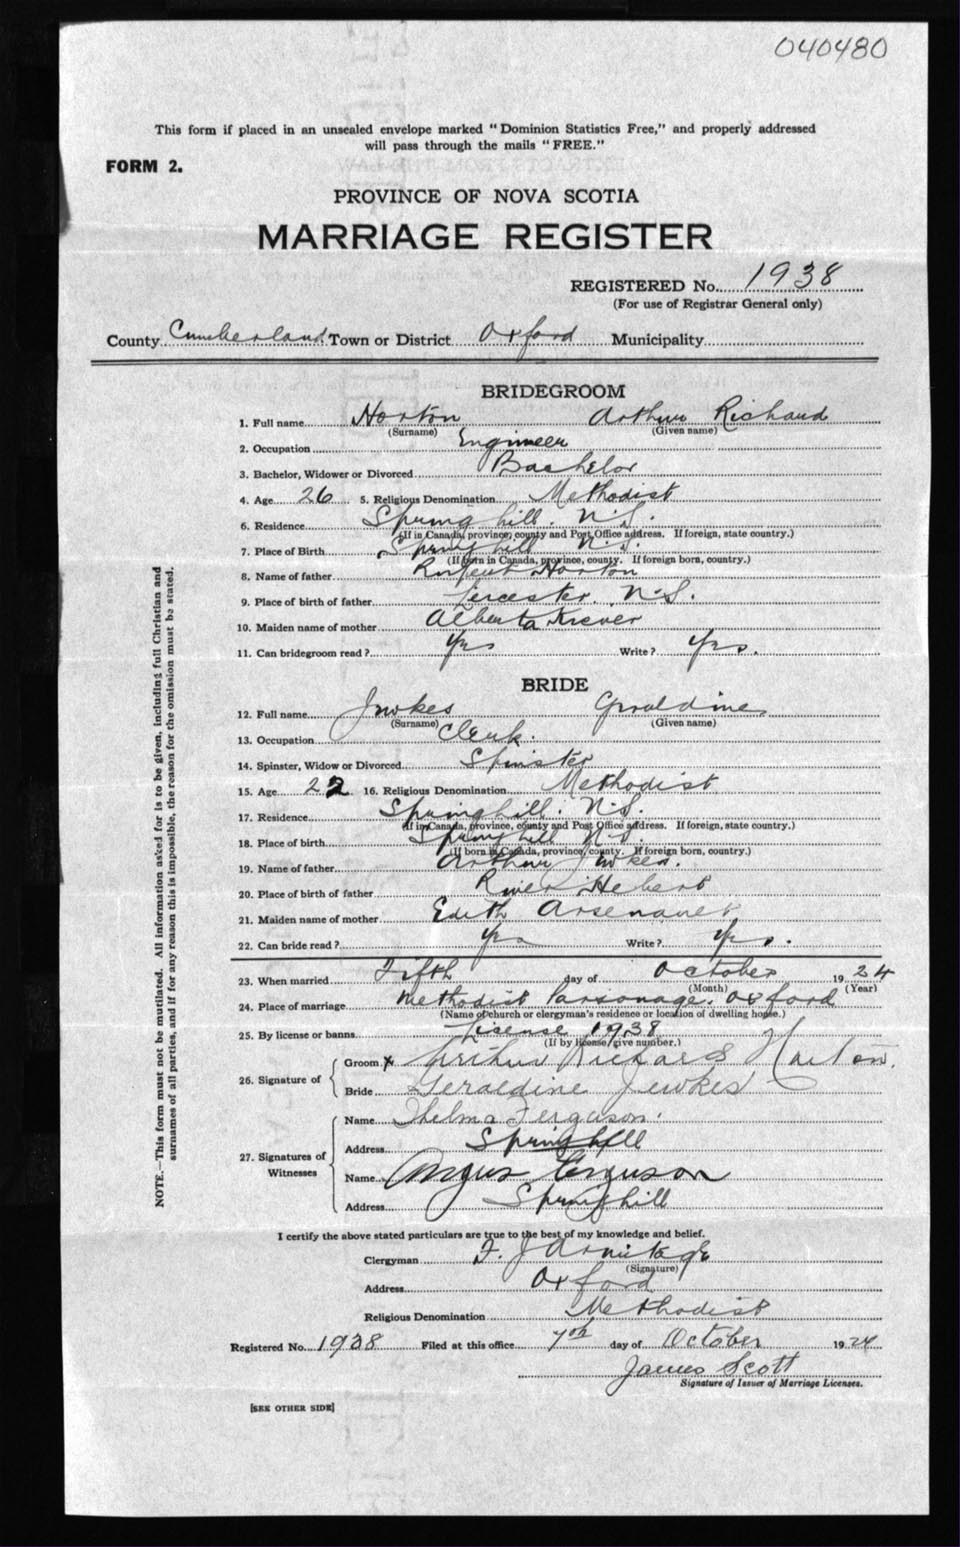 040480
This form if placed in an unsealed envelope marked "Dominion Statistics Free," and properly addressed
will pass through the mails "FREE."
FORM 2.
PROVINCE OF NOVA SCOTIA
MARRIAGE REGISTER
REGISTERED No. 1938
(For use of Registrar General only)
County Cumberland Town or District Oxford Municipality
BRIDEGROOM
1. Full name Horton Arthur Richard
(Surname) (Given name)
2. Occupation Engineer
3. Bachelor, Widower or Divorced Bachelor
4. Age 26 5. Religious Denomination Methodist
6. Residence Springhill. N.S.
(If in Canada, province, county and Post Office address. If foreign, state country.)
7. Place of Birth Springhill N.S.
(If born in Canada, province, county. If foreign born, country.)
8. Name of father Horton
9. Place of birth of father Leicester. N.S.
10. Maiden name of mother Alberta
11. Can bridegroom read? Yes Write? Yes.
BRIDE
12. Full name Jewkes Geraldine
(Surname) (Given name)
13. Occupation Clerk.
14. Spinster, Widow or Divorced Spinster
15. Age 22 16. Religious Denomination Methodist
17. Residence Springhill N.S.
(If in Canada, province, county and Post Office address. If foreign, state country.)
18. Place of birth Springhill N.S.
(If born in Canada, province, county. If foreign born, country.)
19. Name of father Arthur Jewkes.
20. Place of birth of father River Hebert
21. Maiden name of mother Edith Arsenault
22. Can bride read? Yes Write? Yes.
23. When married Fifth day of October 1924
(Month) (Year)
24. Place of marriage Methodist Parsonage. Oxford
(Name of church or clergyman's residence or location of dwelling house.)
25. By license or banns License 1938
(If by license, give number.)
26. Signature of
Groom x Arthur Richard Horton.
Bride Geraldine Jewkes
27. Signatures of Witnesses
Name Thelma Ferguson.
Address Springhill
Name Angus Ferguson
Address Springhill
I certify the above stated particulars are true to the best of my knowledge and belief.
Clergyman F. J Armitage
(Signature)
Address Oxford
Religious Denomination Methodist
Registered No. 1938 Filed at this office 7th day of October 1924
James Scott
Signature of Issuer of Marriage Licenses.
[SEE OTHER SIDE]
NOTE.—This form must not be mutilated. All information asked for is to be given, including full Christian and
surnames of all parties, and if for any reason this is impossible, the reason for the omission must be stated.